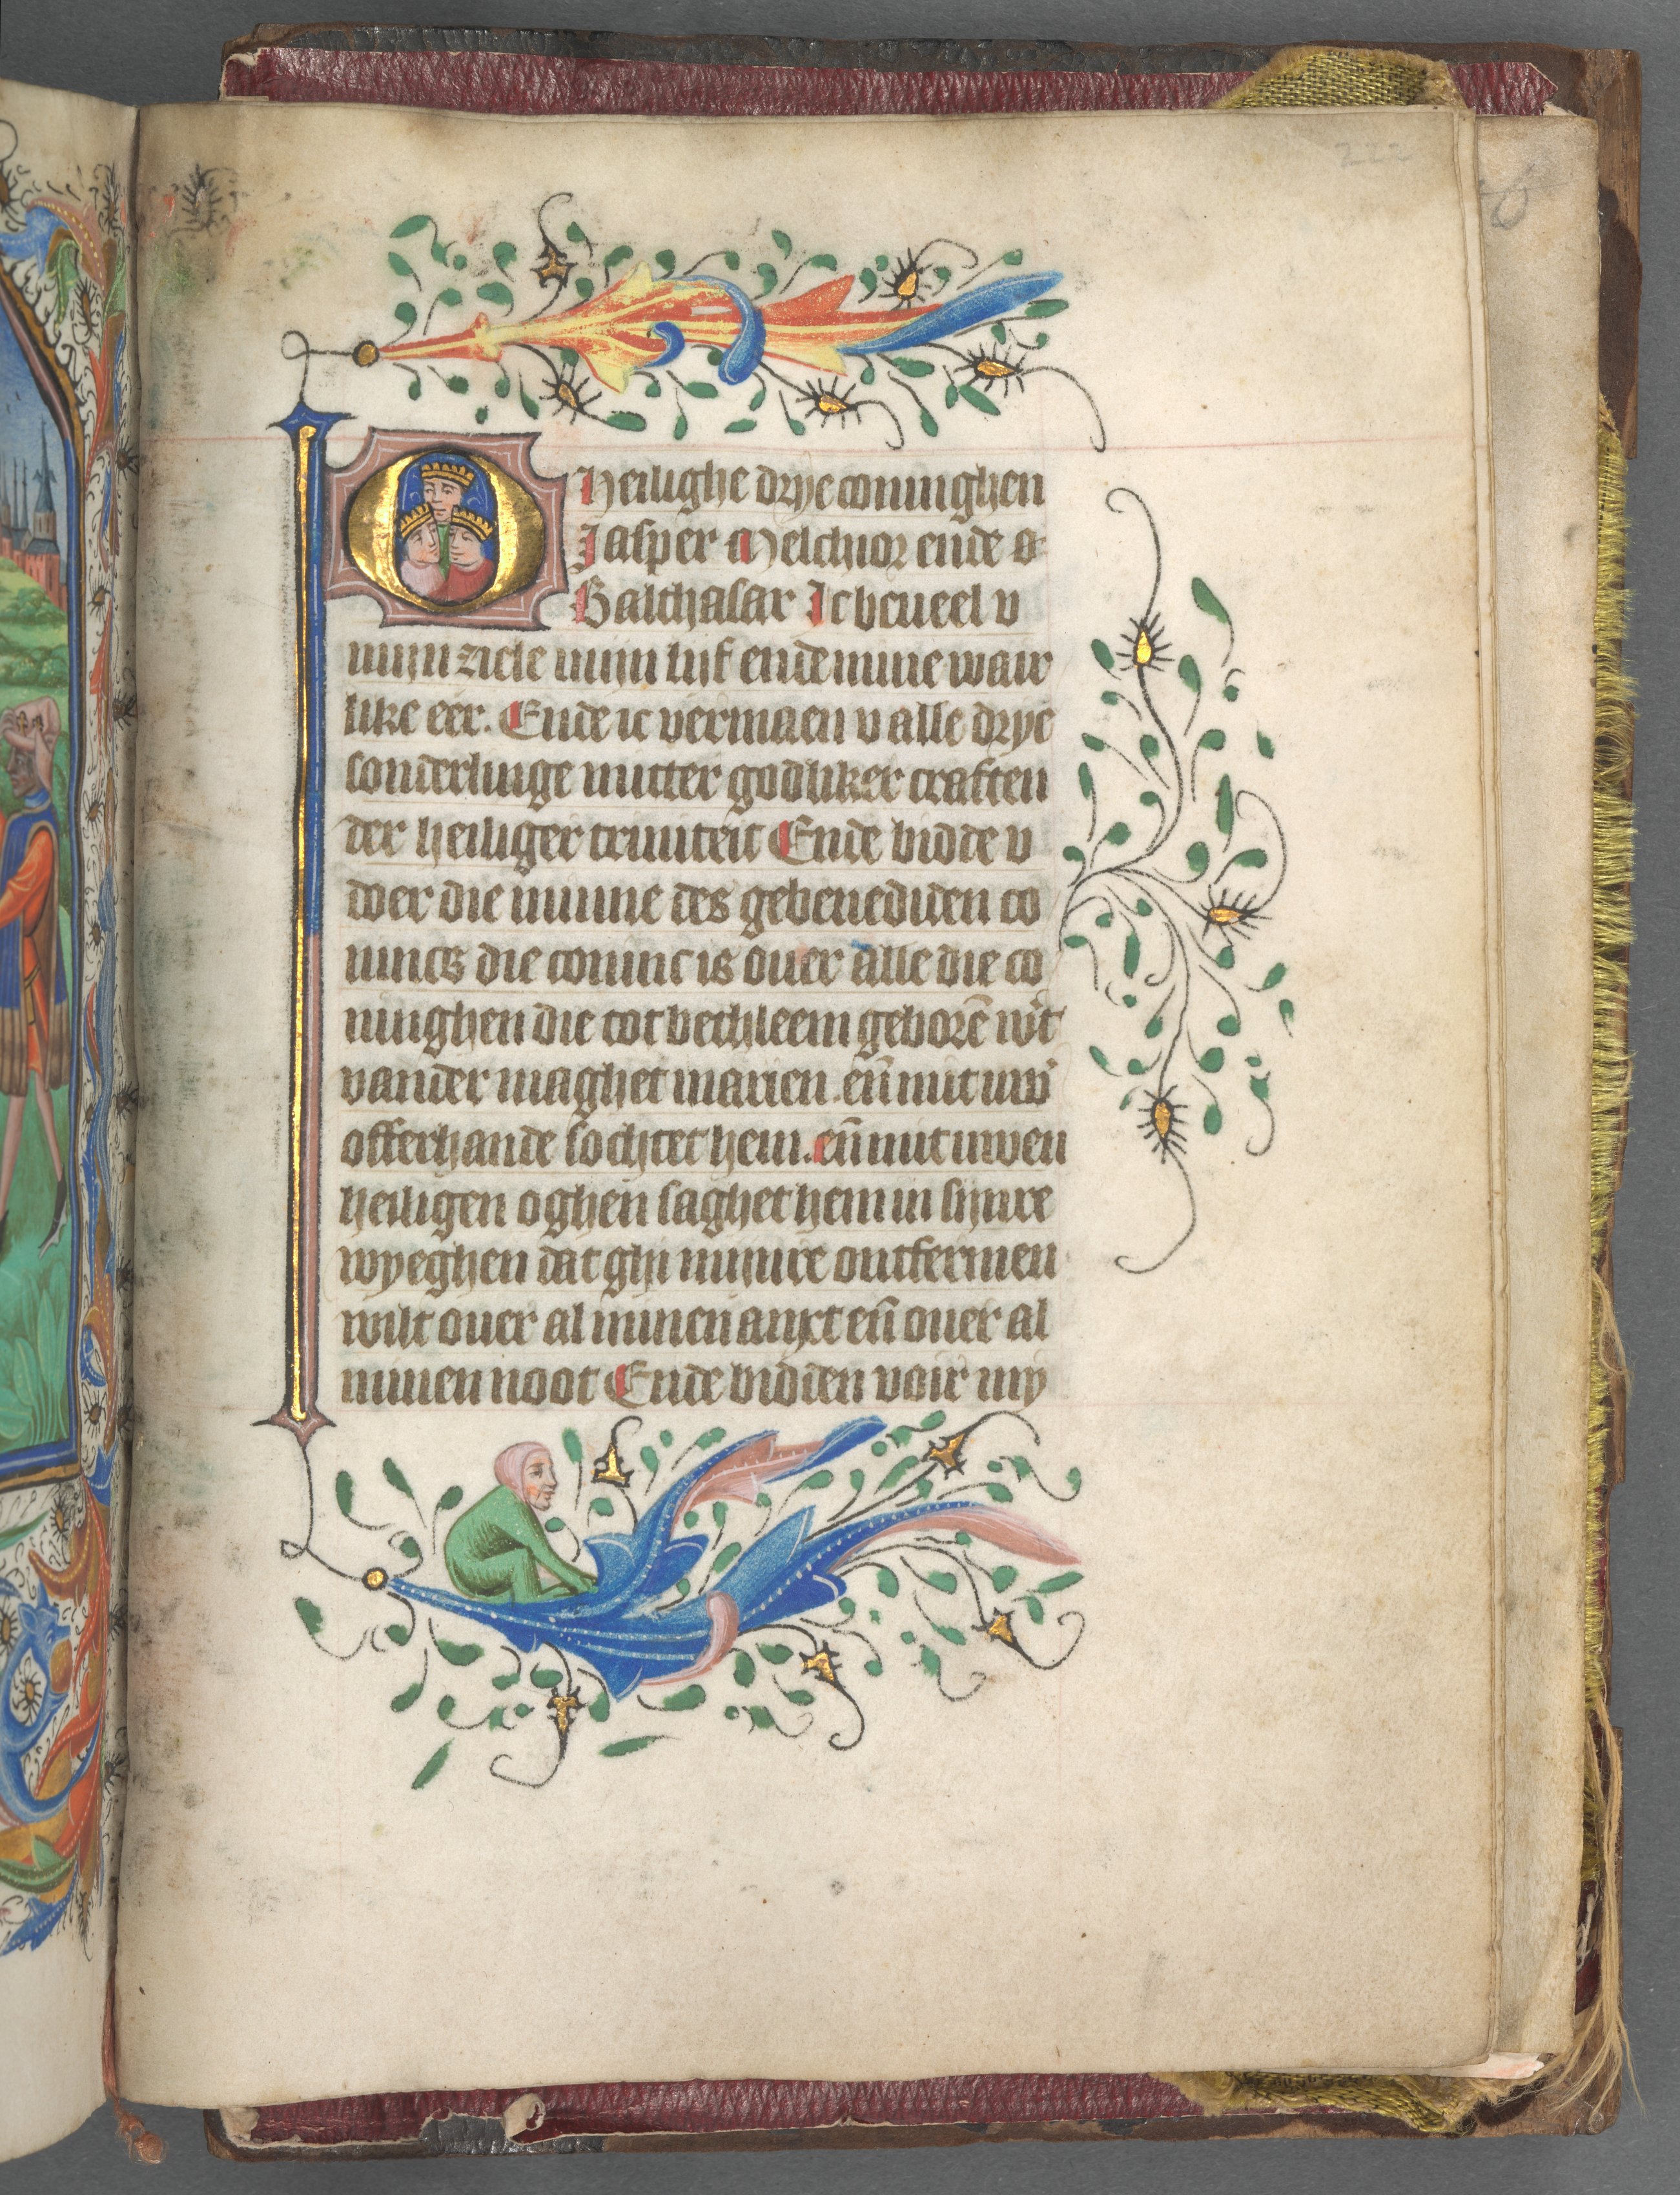 222
O Heilighe drye coninghen
Jasper Melchior ende
Balthasar Ic beueel v
mijn ziele mijn lijf ende mine wair
like eer. Ende ic vermaen v alle drye
sonderlinge mitter godliker craften
der heiliger triniteit Ende bidde v
doer die minne des gebenediden co
nincs die coninc is ouer alle die co
ninghen die tot bethleem geborē wt
vander maghet marien. eñ mit uwē
offerhande sochtet hem. eñ mit uwen
heiligen oghen saghet hem in sijnre
wyeghen dat ghi mijnre ontfermen
wilt ouer al minen anxt eñ ouer al
minen noot Ende bidden voir mij